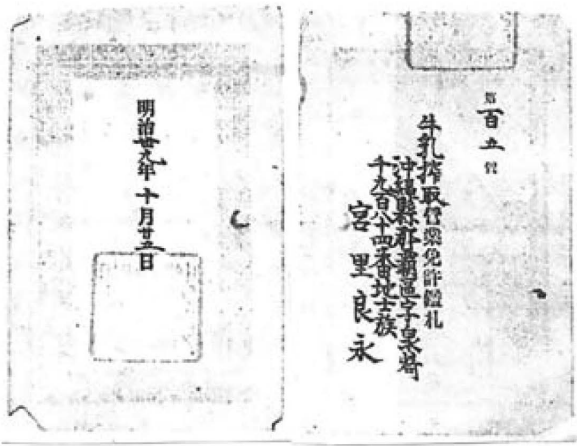 第一百五号
牛乳搾取営業免許鑑札
沖縄縣那覇區字泉崎
千九百八十四番地士族
宮里良永
明治廿九年十月廿五日